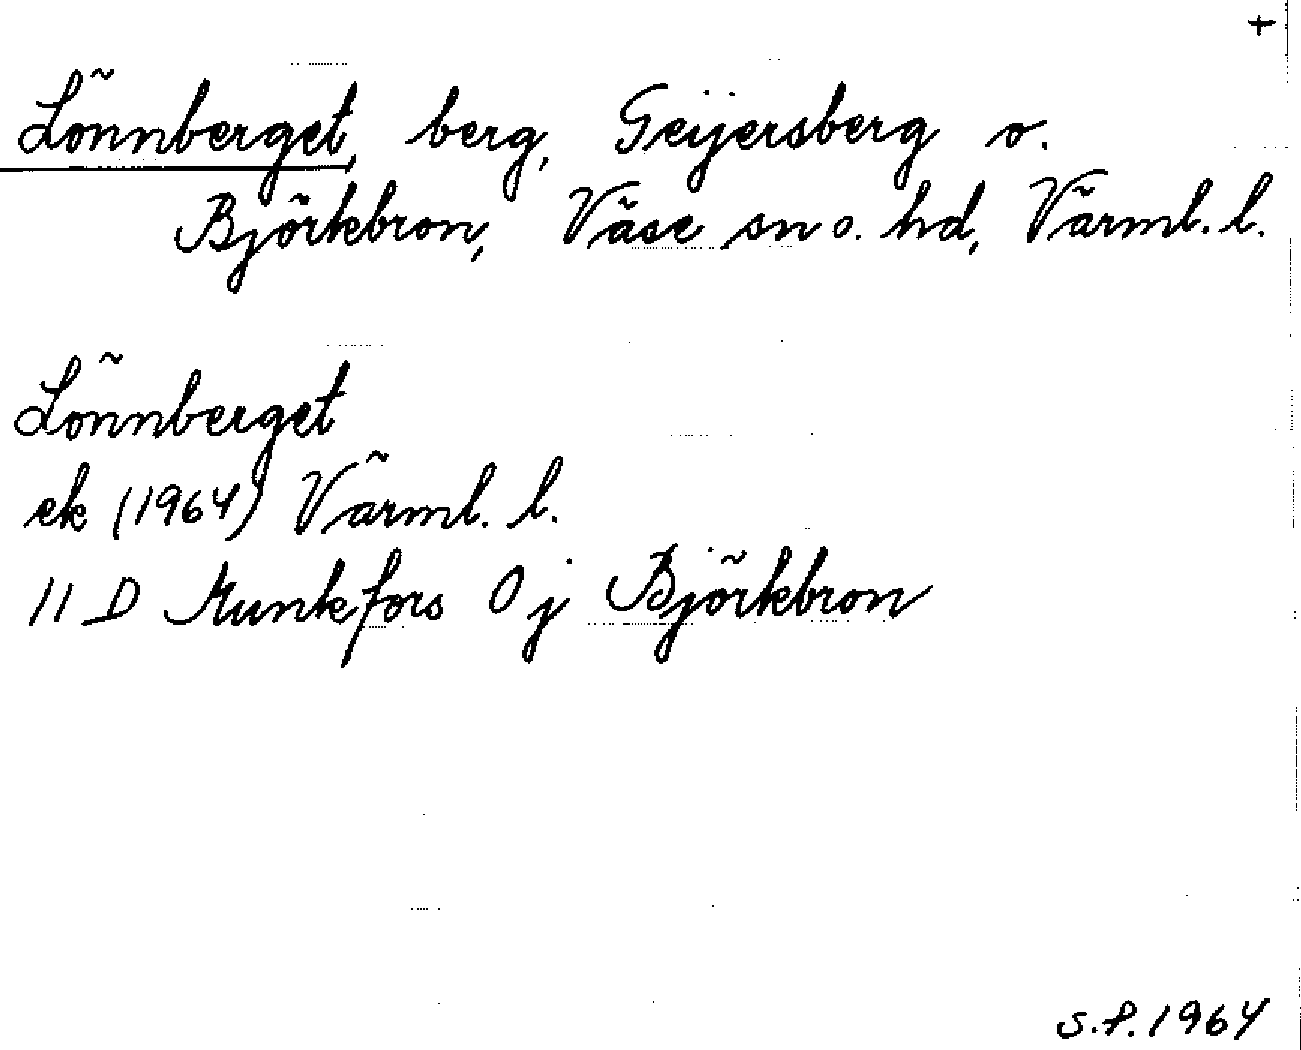 +
Lönnberget, berg, Geijersberg o.
Björkebron, Väse sn o. hd, Värml. l.
Lönnberget
ek (1964) Värml. l.
11 D Munkfors 0 j Björkebron
S.f. 1964